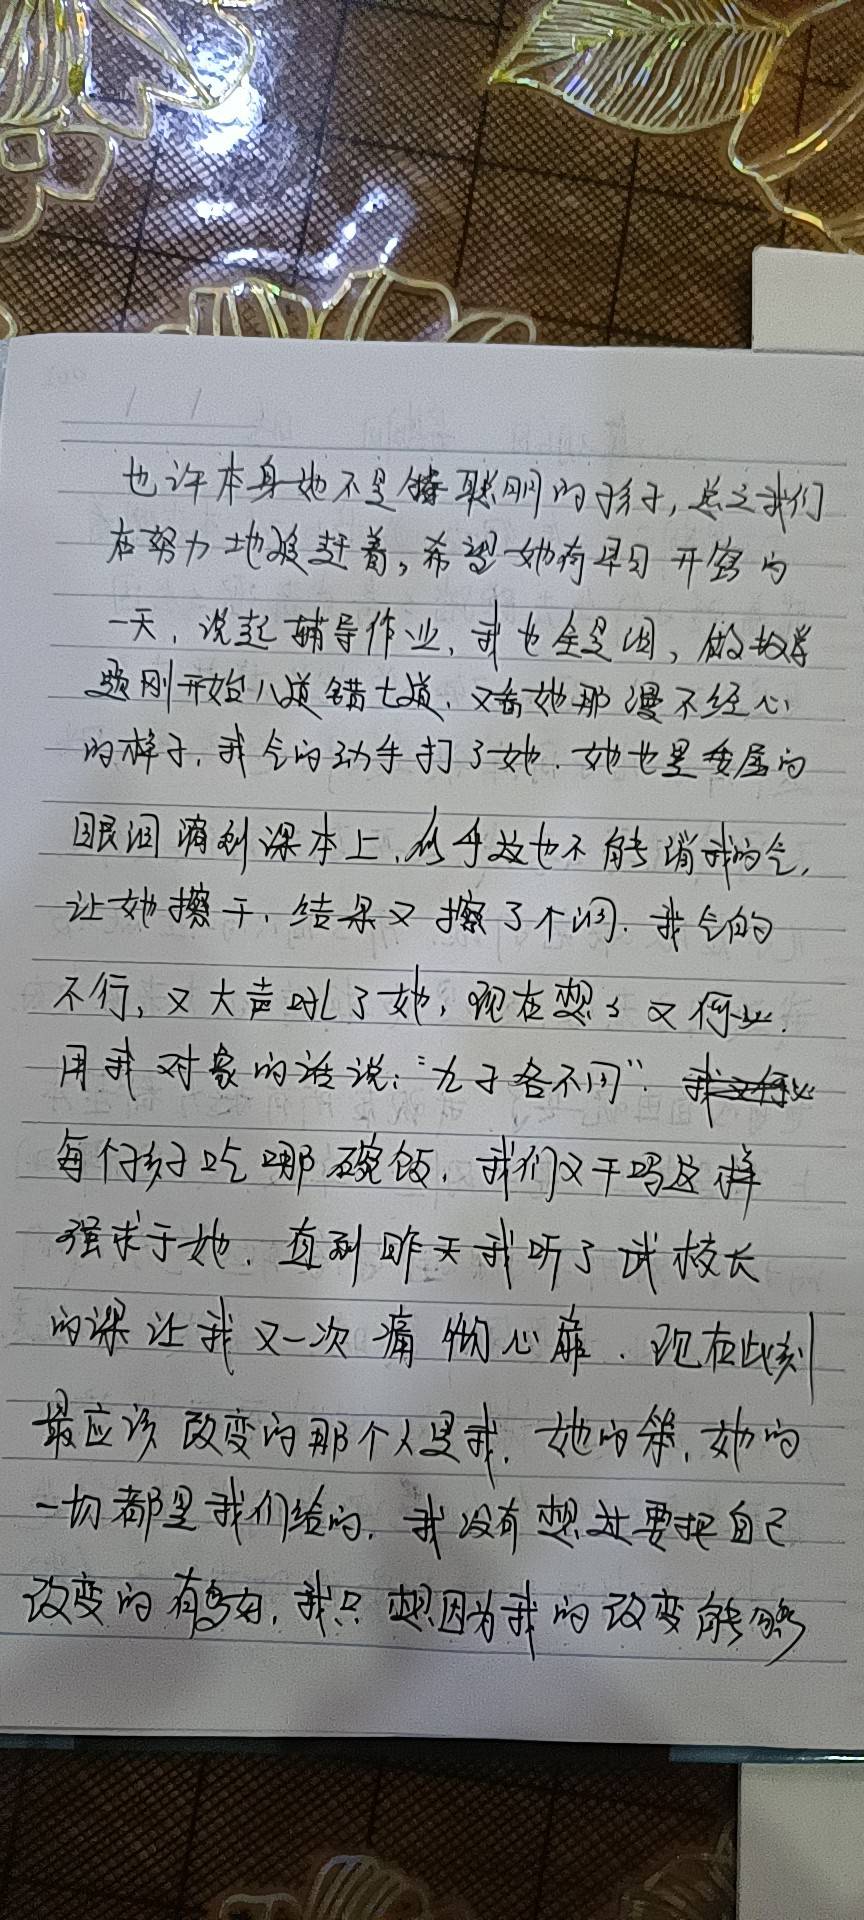 也许本身她不是很聪明的孩子，总之我们
在努力地追赶着，希望她有早日开窍的
一天，说起辅导作业，我也全是泪，做数学
题刚开始八道错七道，又看她那漫不经心
的样子，我气的动手打了她．她也是委屈的
眼泪滴到课本上，似乎这也不能消我的气，
让她擦干，结果又擦了个洞．我气的
不行，又大声吼了她，现在想想又何必．
用我对象的话说："九子各不同"．
每个孩子吃哪碗饭，我们又干吗这样
强求于她．直到昨天我听了武校长
的课让我又一次痛彻心扉．现在此刻
最应该改变的那个人是我．她的笨，她的
一切都是我们给的．我没有想过要把自己
改变的有多好，我只想因为我的改变能够